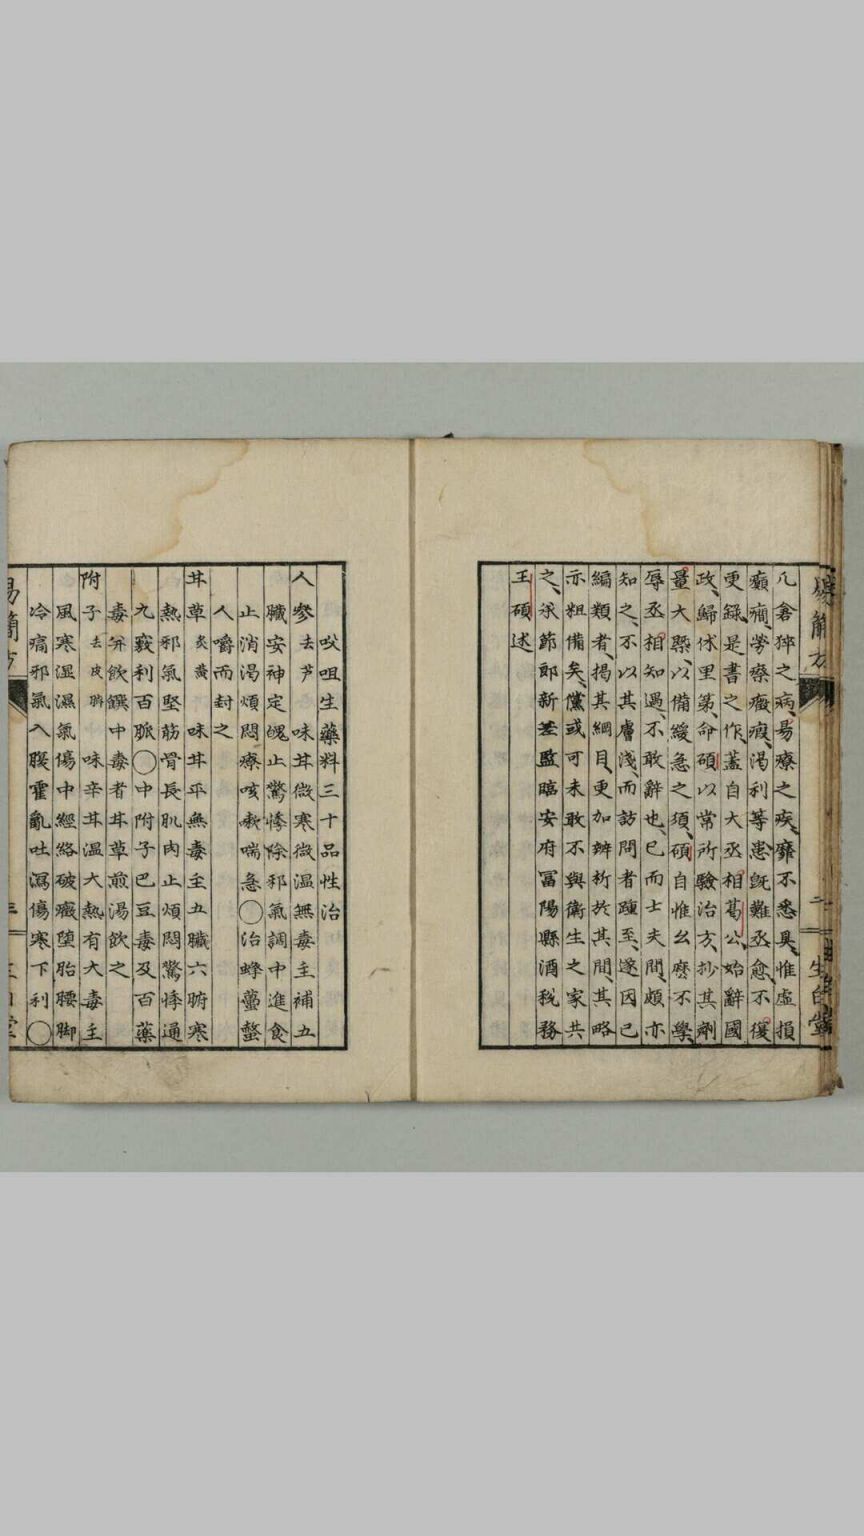 易簡方
凢倉猝之病易療之疾靡不悉具惟虛損
癲癎勞瘵癥瘕渇利等患旣難亟愈不復
更錄是書之作蓋自大丞相葛公始辭國
政歸休里第命碩以常所驗治方抄其劑
量大槩以備緩急之須碩自惟幺麽不學
辱丞相知遇不敢辭也已而士夫問頗亦
知之不以其膚淺而訪問者踵至遂因已
編類者揭其綱目更加辨析於其間其略
亦粗備矣儻或可未敢不與衛生之家共
之承節郎新差監臨安府富陽縣酒稅務
王碩述
㕮咀生藥料三十品性治
人參去芦 味甘微寒微温無毒主補五
臟安神定魄止驚悸除邪氣調中進食
止消渇煩悶療咳嗽喘急○治蜂蠆螫
人嚼而封之
甘草炙黃 味甘平無毒主五臟六腑寒
熱邪氣堅筋骨長肌肉止煩悶驚悸通
九竅利百脈○中附子巴豆毒及百藥
毒并飮饌中毒者甘草煎湯飮之
附子去皮臍 味辛甘温大熱有大毒主
風寒湿濕氣傷中經絡破癥墮胎腰脚
冷痛邪氣入腹霍亂吐瀉傷寒下利○